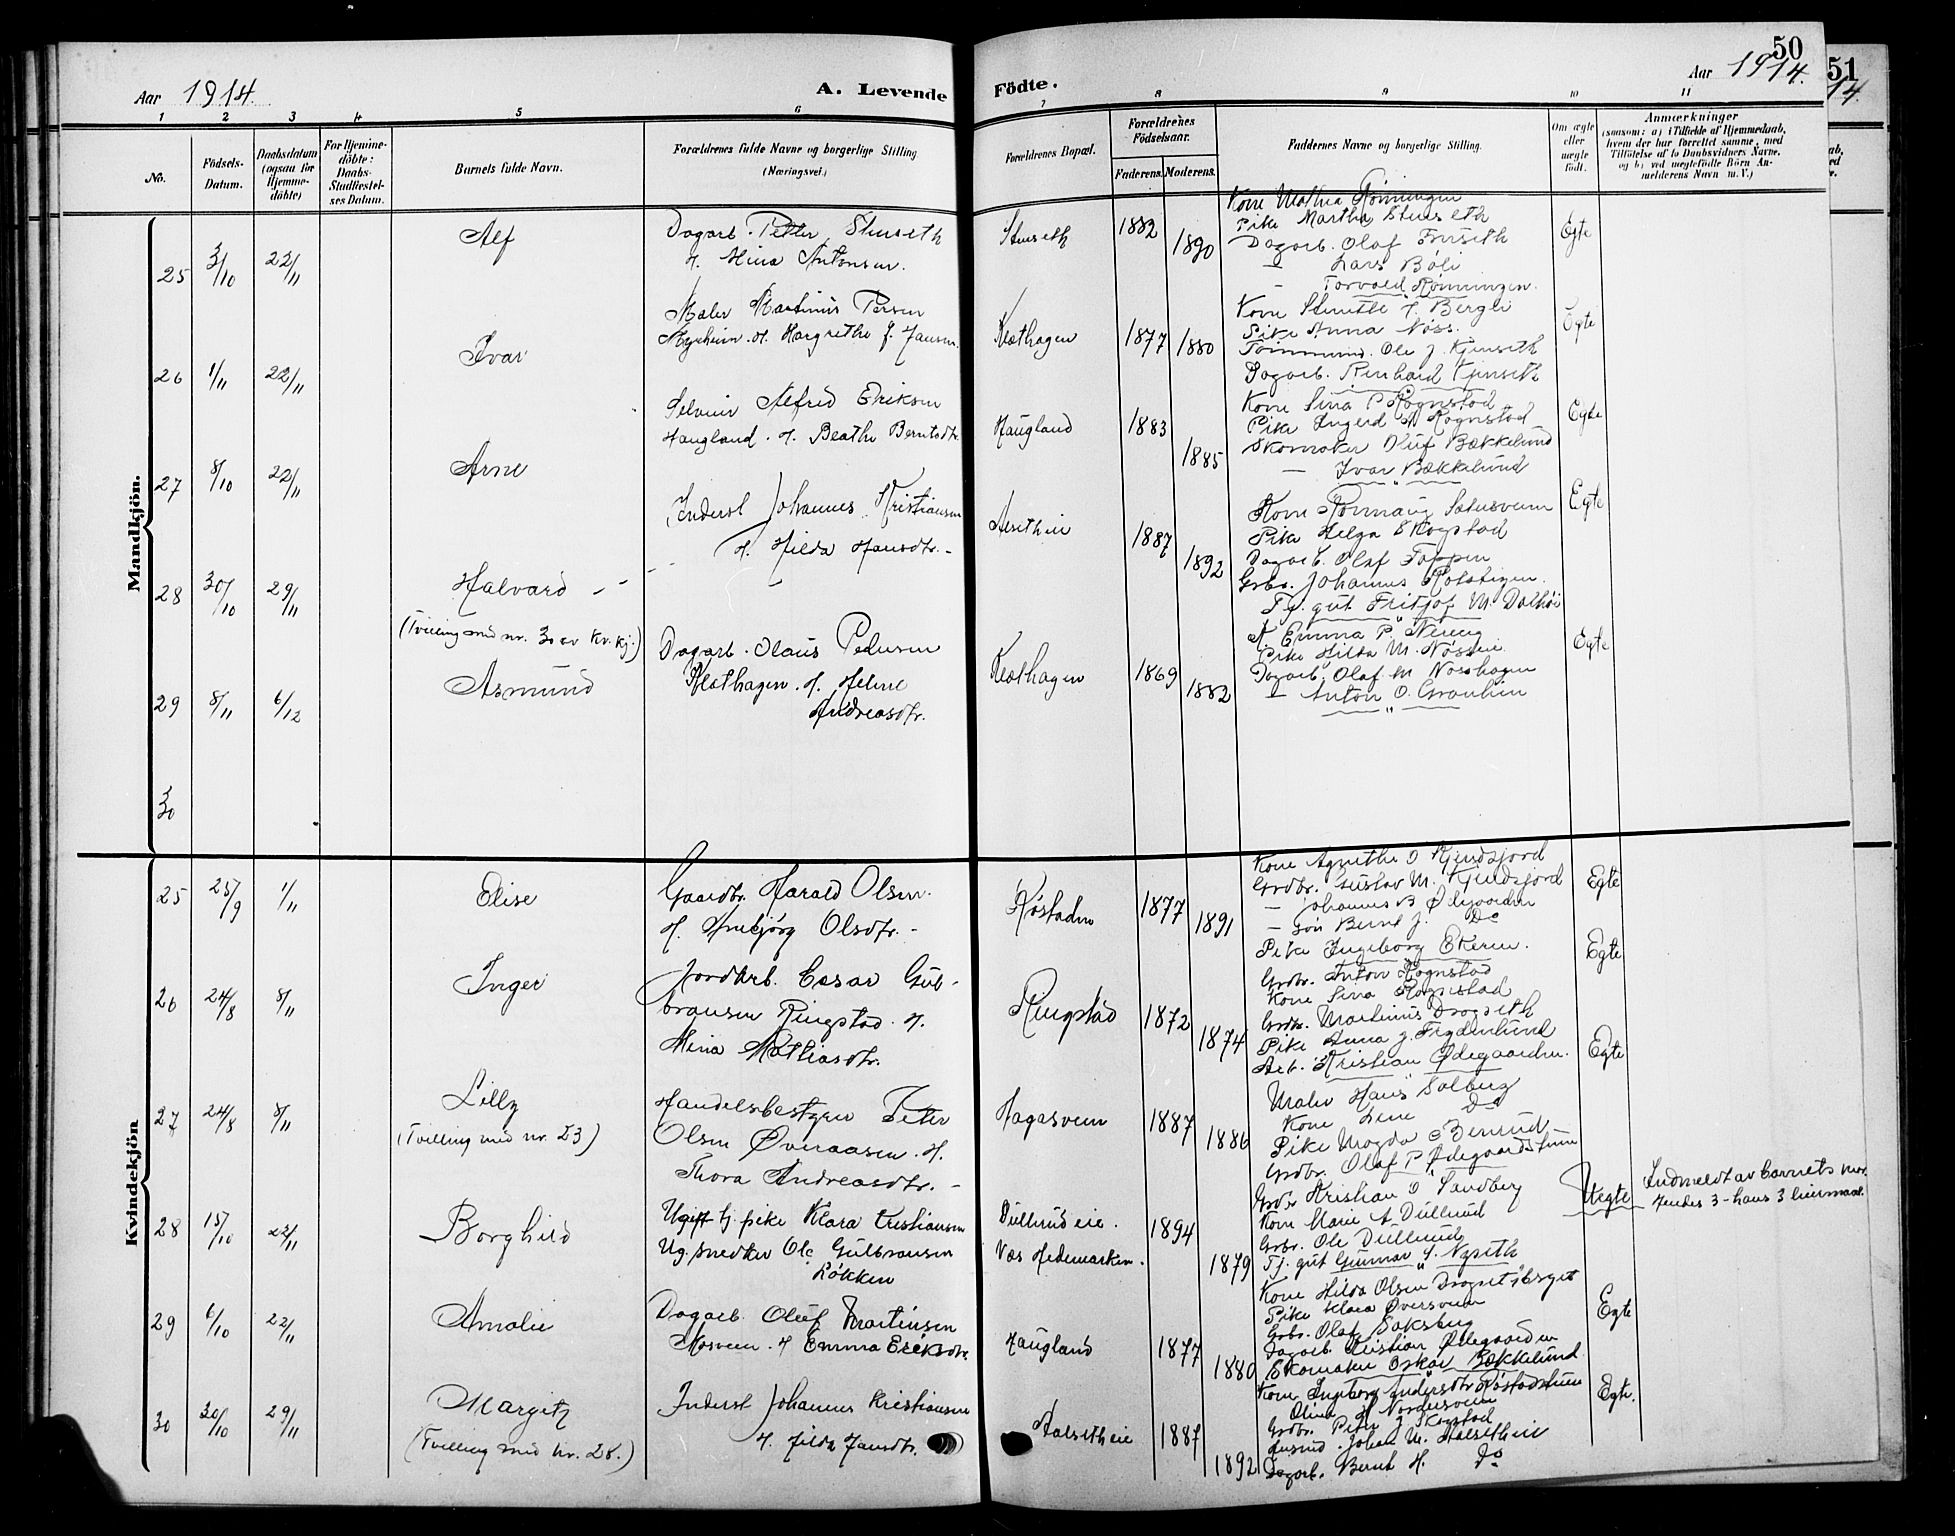 50
51
14.
Aar 1914.
A. Levende
Födte.
Aar 1914.
1 2 3 4 5 6 7 8 9 10 11
No.
Födsels-
Datum.
Daabsdatum
(ogsaa for
Hjemme-
döbte)
For Hjemme-
döbte:
Daabs-
Stadfæstel-
ses Datum.
Barnets fulde Navn.
Forældrenes fulde Navne og borgerlige Stilling
(Næringsvei.)
Forældrenes Bopæl.
Forældrenes
Födselsaar.
Faderens.
Moderens.
Faddernes Navne og borgerlige Stilling.
Om ægte
eller
uægte
født.
Anmærkninger
(saasom: a) i Tilfælde af Hjemmedaab,
hvem der har forrettet samme, med
Tilføielse af to Daabsvidners Navne,
og b) ved uægtefödte Börn An-
melderens Navn m. V.)
Mandkjön.
25 3/10 22/11
Alf
Dagarb. Petter Stenseth
H. Mina Antonsen.
Stenseth
1882
1890
Kone Mathea Rønningen
Pike Martha Stenseth
Dagarb. Olaf
— Lars Bøli
— Torvald Rønningen.
Egte
26 1/11 22/11
Ivar
Maler Martinus Persen
Myrheim. H. Margrethe J. Jansen.
Klæthagen
1877
1880
Kone H. Bergli
Pike Anna Nøss.
Tømmermd. Ole J. Kjenseth
Dagarb. Reinhard Kjenseth
Egte
27 8/10 22/11
Arne
Selveier Alfred Eriksen
Haugland. H. Beathe Berntsdtr.
Haugland
1883
1885
Kone Sina P Rognstad
Pike Ingerd M Rognstad
Skomaker Oluf Bækkelund
— Ivar Bækkelund
Egte
28 30/10 29/11
Halvard
(Tvilling med nr. 30 av Kv.kj.)
Inderst Johannes Kristiansen
H. Hilda Hansdtr.
1887
1892
Kone Rønnaug
Pike Helga Skogstad
Dagarb. Olaf Toppen
Grbr. Johannes
Tj. gut Fritjof M. Dalhøi
Egte
29 8/11 6/12
Asmund
Dagarb. Olaus Pedersen
Klæthagen. H. Helene
Andreasdtr.
Klæthagen
1869
1882
K Emma P.
Pike Hilda M.
Dagarb. Olaf M Nøsshagen
— Anton O. Granlien
Egte
30
Kvindekjön
25 25/9 1/11
Elise
Gaardbr. Harald Olsen.
H. Olsdtr.
Røstaden
1877
1891
Kone Agnethe O Kjendsjord
Grdbr. Gustav M. Kjendsjord
— Johannes B Ødegaarden
— Søn Bernt J. Do
Egte
26 24/8 8/11
Inger
Jordarb. Cesar Gul-
bransen Ringstad. H.
Mina Mathiasdtr.
Ringstad
1872
1874
Pike Ingeborg Ekeren.
Grbr. Anton Rognstad
Kone Sina Rognstad
Grdbr. Martinius Dragseth
Pike Anna J. Frydenlund
Arb. Kristian Ødegaarden.
Egte
27 24/8 8/11
Lilly
(Tvilling med nr. 23)
Handelsbestyrer Peter
Olsen Øveraasen. H.
Thora Andreasdtr.
Hagasveen
1887
1886
Maler Hans Solberg
Kone Lene Do
Pike Magda Benrud
Grdbr. Olaf P Ødegaardstuen
Egte
28 15/10 22/11
Borghild
Ugift tj. pike Klara Kristiansen
Ug. snedker Ole Gulbransen
Løkken
Dullerud eie.
Vas Hedemarken.
1894
1879
Grdbr Kristian O Sandberg
Kone Marie A Dullerud
Grbr. Ole Dullerud
Tj. gut Gunnar J. Nyseth
Uegte
Indmeldt av barnets mor.
Hendes 3 - hans 3 leiermaal.
29 6/10 22/11
Amalie
Dagarb. Oluf Martinsen
Mosveen. H Emma Eriksdtr.
Haugland
1877
1880
Kone Hilda Olsen
Pike Klara Øversveen
Grbr. Olaf Saksberg
Dagarb. Kristian Ødegaarden
Skomaker Oskar Bækkelund
Egte
30 30/10 29/11
Margith
(Tvilling med nr. 28.)
Inderst Johannes Kristiansen
H. Hilda Hansdtr.
Aalseth eie
1887
1892
Kone Ingeborg Andersdtr Røstadstuen
Oline H Nordensveen
Grdbr. Peter J Skogstad
Johan M. Aalseth eie
Dagarb. Bernt H. Do
Egte.